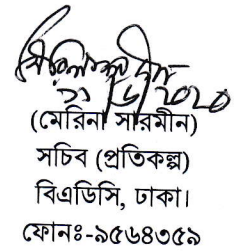 ২১/৬/২০২০
(মেরিনা সারমীন)
সচিব (প্রতিকল্প)
বিএডিসি, ঢাকা।
ফোনঃ-৯৫৬৪৩৫৯